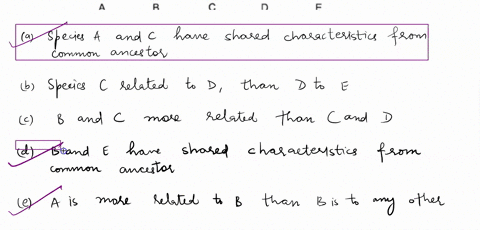 A B C D E
(a) Species A and C have shared characteristics from
common ancestor
(b) Species C related to D, than D to E
(c) B and C more related than C and D
(d) B and E have shared characteristics from
common ancestor
(e) A is more related to B than B is to any other